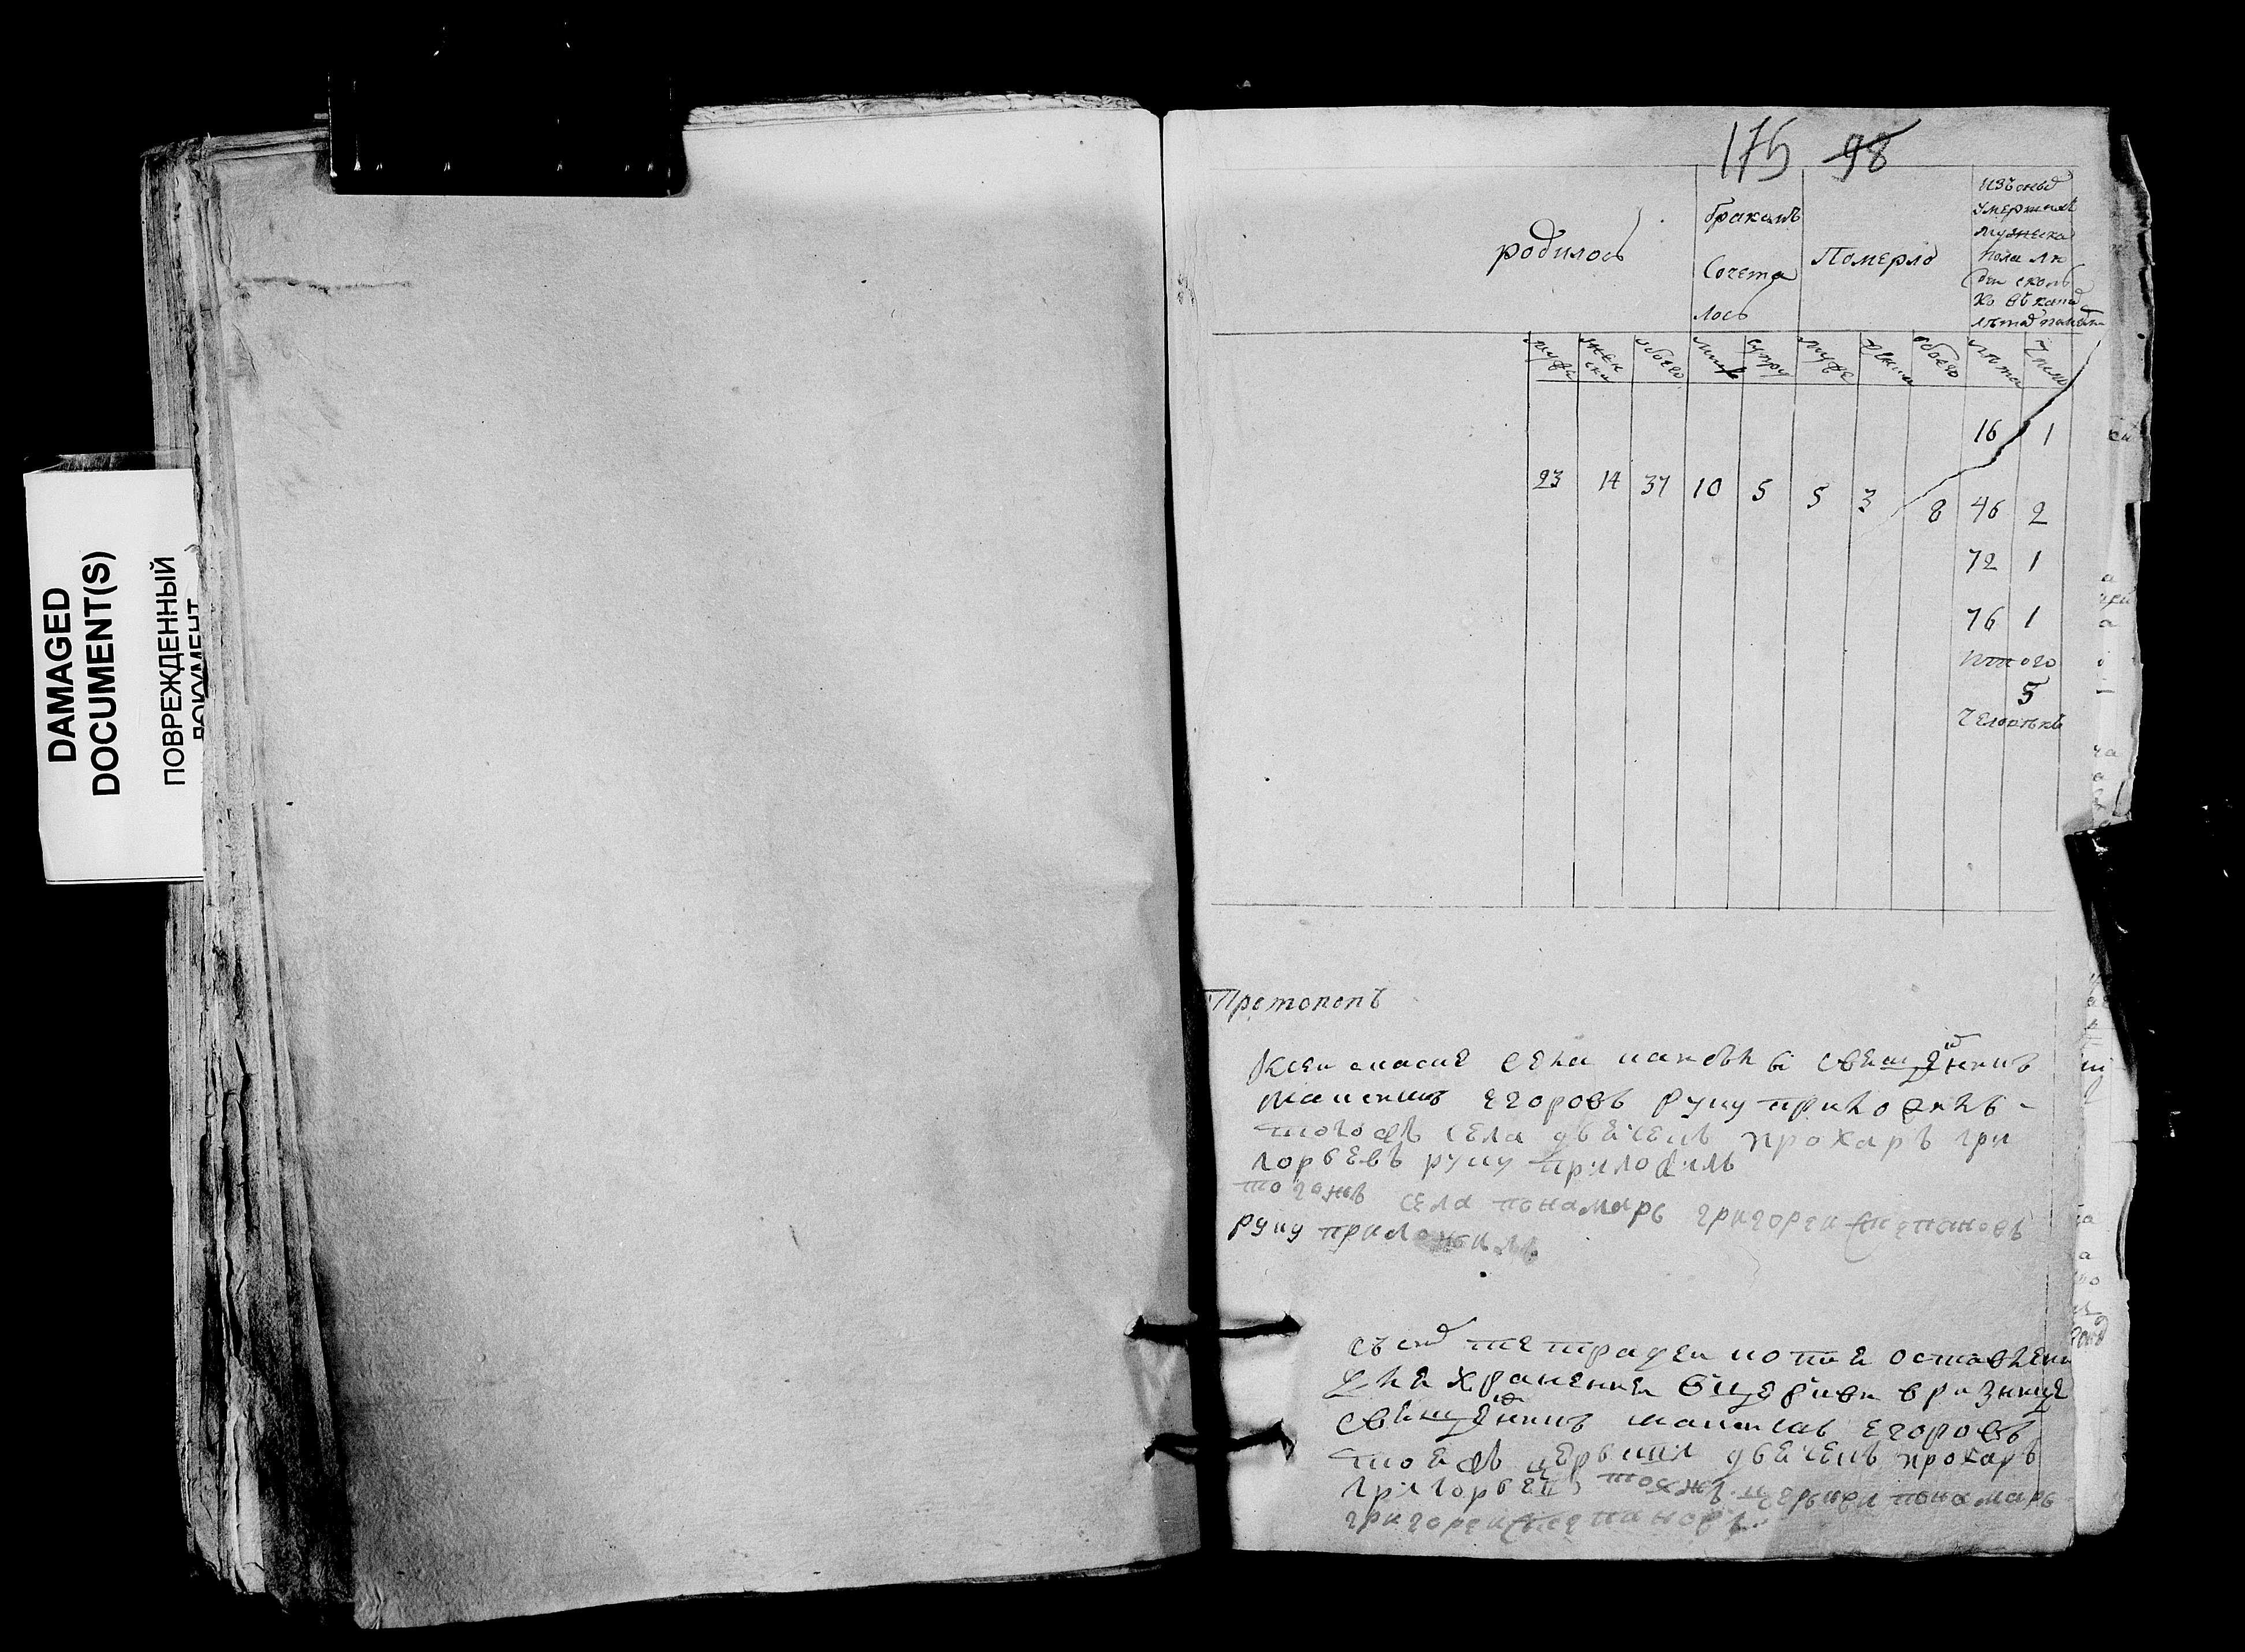 DAMAGED
DOCUMENT(S)
ПОВРЕЖДЕННЫЙ
ДОКУМЕНТ
175 98
родилось
бракомъ
Сочета
лось
Померло
изъ оныхъ
умершихъ
мужеска
пола лю
деи сколь
ко въ какихъ
летахъ
муже женска обоего лицъ супру муже женска обоего лета число
16 1
23 14 37 10 5 5 3 8 46 2
72 1
76 1
итого
5
человекъ
Протопопъ
села священникъ
Егоровъ руку приложилъ
тогожъ села дьячекъ прохаръ гри
горьевъ руку приложилъ
тогожъ села понамарь григореи степановъ
руку приложилъ
съ сихъ тетрадеи копиа оставлена
для хранения в ризнице
священникъ Егоровъ
тоежъ церкви дьячекъ прохаръ
григорьевъ тоежъ церкви понамарь
григореи степановъ